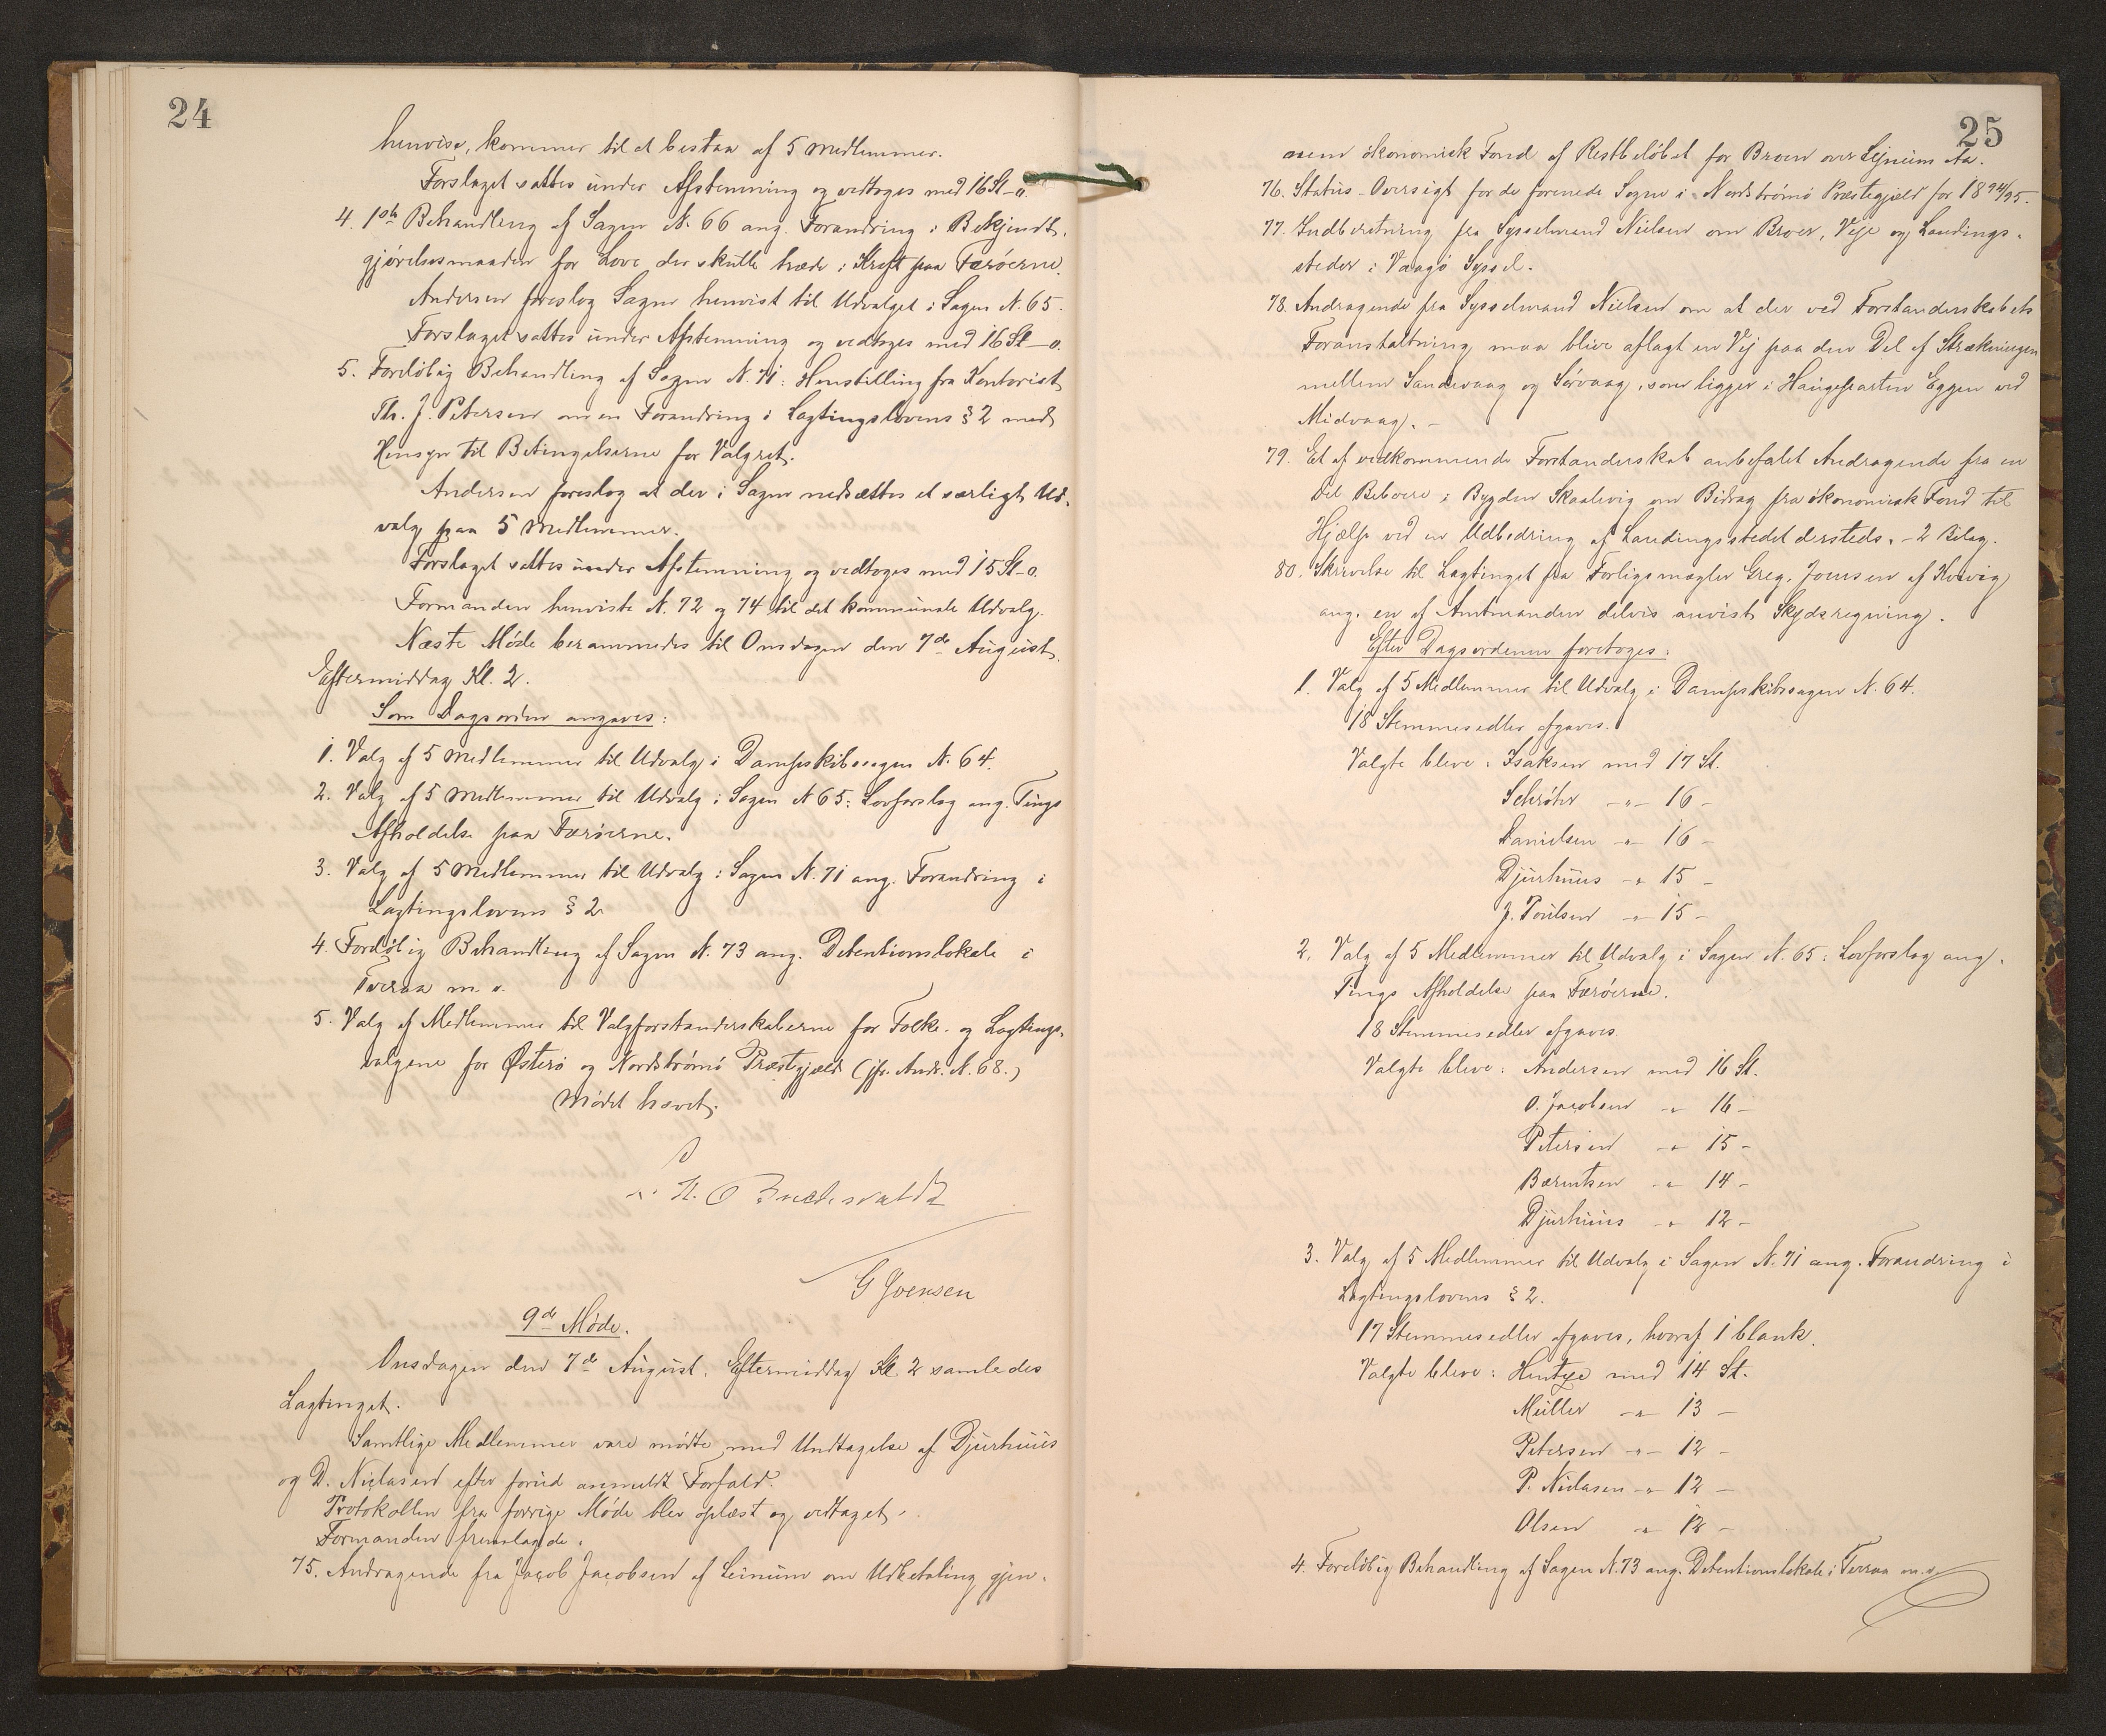 24
henvise, kommer til at bestaa af 5 Medlemmer.
Forslaget sattes under Afstemning og vedtoges med 16 St-0.
4. 1ste Behandling af Sagen N. 66 ang. Forandring i Bekjendt-
gjørelsesmaaden for Love der skulle træde i Kraft paa Færøerne.
Andersen foreslog Sagen henvist til Udvalget i Sagen N. 65.
Forslaget sattes under Afstemning og vedtoges med 16 St-0.
5. Foreløbig Behandling af Sagen N. 71: Henstilling fra Kontorist
Th. J. Petersen om en Forandring i Lagtingslovens § 2 med
Hensyn til Betingelserne for Valgret.
Andersen foreslog at der i Sagen nedsættes et særligt Ud-
valg paa 5 Medlemmer.
Forslaget sattes under Afstemning og vedtoges med 15 St-0.
Formanden henviste N. 72 og 74 til det kommunale Udvalg.
Næste Møde berammedes til Onsdagen den 7de August
Eftermiddag Kl. 2.
Som Dagsorden angaves:
1. Valg af 5 Medlemmer til Udvalg i Dampskibssagen N. 64.
2. Valg af 5 Medlemmer til Udvalg i Sagen N 65: Lovforslag ang. Tings
Afholdelse paa Færøerne.
3. Valg af 5 Medlemmer til Udvalg i Sagen N. 71 ang. Forandring i
Lagtingslovens § 2
4. Foreløbig Behandling af Sagen N. 73 ang. Detentionslokale i
Tveraa m. v.
5. Valg af Medlemmer til Valgforstanderskaberne for Folke- og Lagtings-
valgene for Østerø og Nordstrømø Præstegjæld (jfr. Andr. N. 68.)
Mødet hævet.
G Joensen
9de Møde.
Onsdagen den 7de August, Eftermiddag Kl. 2 samledes
Lagtinget.
Samtlige Medlemmer vare mødte med Undtagelse af Djurhuus
og D. Niclasen efter forud anmeldt Forfald.
Protokollen fra forrige Møde blev oplæst og vedtaget.
Formanden fremlagde:
75. Andragende fra Jacob Jacobsen af Leinum om Udbetaling gjen-
25
nem økonomisk Fond af Restbeløbet for Broen over Lejnum Aa.
76. Status-Oversigt for de forenede Sogne i Nordstrømø Præstegjæld for 1894/95.
77. Indberetning fra Sysselmand Nielsen om Broer, Veje og Landings-
steder i Vaagø Syssel.
78. Andragende fra Sysselmand Nielsen om at der ved Forstanderskabets
Foranstaltning maa blive aflagt en Vej paa den Del af Strækningen
mellem Sandevaag og Sørvaag, som ligger i Haugeparten Eggen ved
Midvaag. -
79. Et af vedkommende Forstanderskab anbefalet Andragende fra en
Del Beboere i Bygden Skaalevig om Bidrag fra økonomisk Fond til
Hjælp ved en Udbedring af Landingsstedet dersteds. - 2 Bilag.
80. Skrivelse til Lagtinget fra Forligsmægler Greg. Joensen af Kvivig
ang. en af Amtmanden delvis anvist Skydsregning.
Efter Dagsordenen foretoges:
1. Valg af 5 Medlemmer til Udvalg i Dampskibssagen N. 64.
18 Stemmesedler afgaves.
Valgte bleve: Isaksen med 17 St.
Schrøter -"- 16 -
Danielsen -"- 16 -
Djurhuus -"- 15 -
J. Poulsen -"- 15 -
2. Valg af 5 Medlemmer til Udvalg i Sagen N. 65: Lovforslag ang.
Tings Afholdelse paa Færøerne.
18 Stemmesedler afgaves.
Valgte bleve: Andersen med 16 St.
O. Jacobsen -"- 16 -
Petersen -"- 15 -
Bærentsen -"- 14 -
Djurhuus -"- 12 -
3. Valg af 5 Medlemmer til Udvalg i Sagen N. 71 ang. Forandring i
Lagtingslovens § 2.
17 Stemmesedler afgaves, hvoraf 1 blank.
Valgte bleve: Hentze med 14 St.
Müller -"- 13 -
Petersen -"- 12 -
P. Niclasen -"- 12 -
Olsen -"- 12 -
4. Foreløbig Behandling af Sagen N. 73 ang. Detentionslokale i Tveraa m. v.